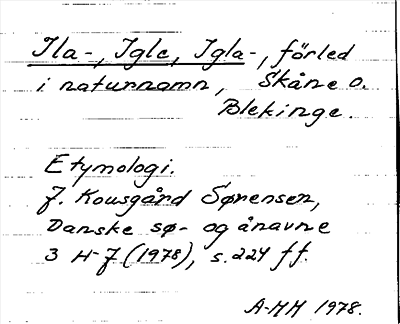 Ila-, Igle, Igla-, förled
i naturnamn, Skåne o.
Blekinge.
Etymologi.
J. Kousgård Sørensen,
Danske sø- og ånavne
3 H-J (1978), s. 224 ff.
A-MH 1978.